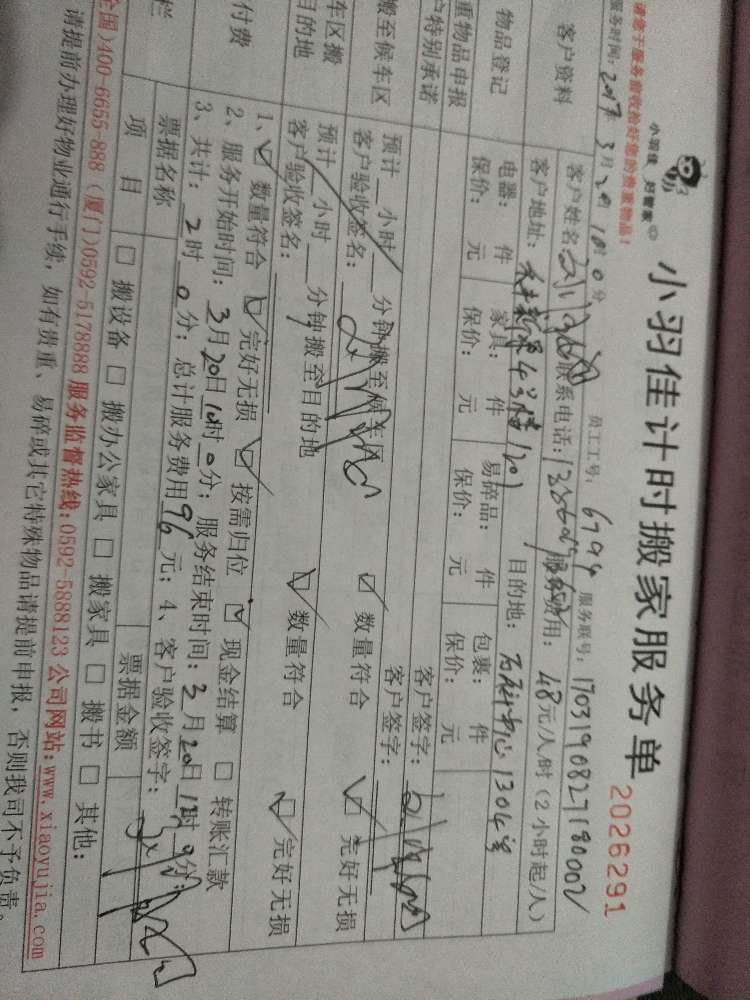 小羽佳 好管家
小羽佳计时搬家服务单 2026291
请您于服务前收拾好您的贵重物品!
员工工号: 6794 服务联号: 170319082718000
服务时间: 2017年3月20日10时0分
客户资料 客户姓名: 联系电话: 服务费用: 48元/人/时(2小时起/人)
客户地址: 新景4号楼1201 目的地: 中心1304室
物品登记 电器: 件 家具: 件 易碎品: 件 包裹: 件
保价: 元 保价: 元 保价: 元 保价: 元
重物品申报
户特别承诺 客户签字:
搬至候车区 预计 小时 分钟搬至候车区 ☑ 数量符合 ☑ 完好无损
客户验收签名: 客户签字:
车区搬 预计 小时 分钟搬至目的地 ☑ 数量符合 ☑ 完好无损
目的地 客户验收签名:
付费 1、☑ 数量符合 ☑ 完好无损 ☑ 按需归位 ☑ 现金结算 □ 转账汇款
2、服务开始时间: 3月20日10时0分; 服务结束时间: 3月20日12时0分;
3、共计: 2时0分; 总计服务费用96元; 4、客户验收签字:
栏 票据名称 票据金额
项 目 □ 搬设备 □ 搬办公家具 □ 搬家具 □ 搬书 □ 其他:
全国)400-6655-888 (厦门)0592-5178888 服务监督热线:0592-5888123 公司网站:www.xiaoyujia.com
请提前办理好物业通行手续, 如有贵重、易碎或其它特殊物品请提前申报, 否则我司不予负责。